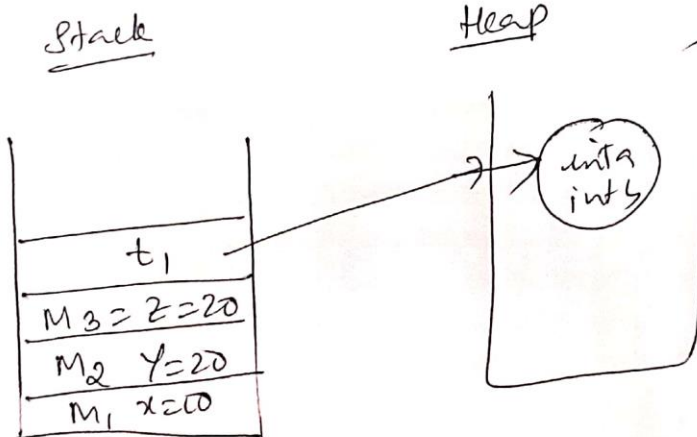 Stack
Heap
int a
int b
t1
M3 = Z = 20
M2 Y = 20
M1 x = 10